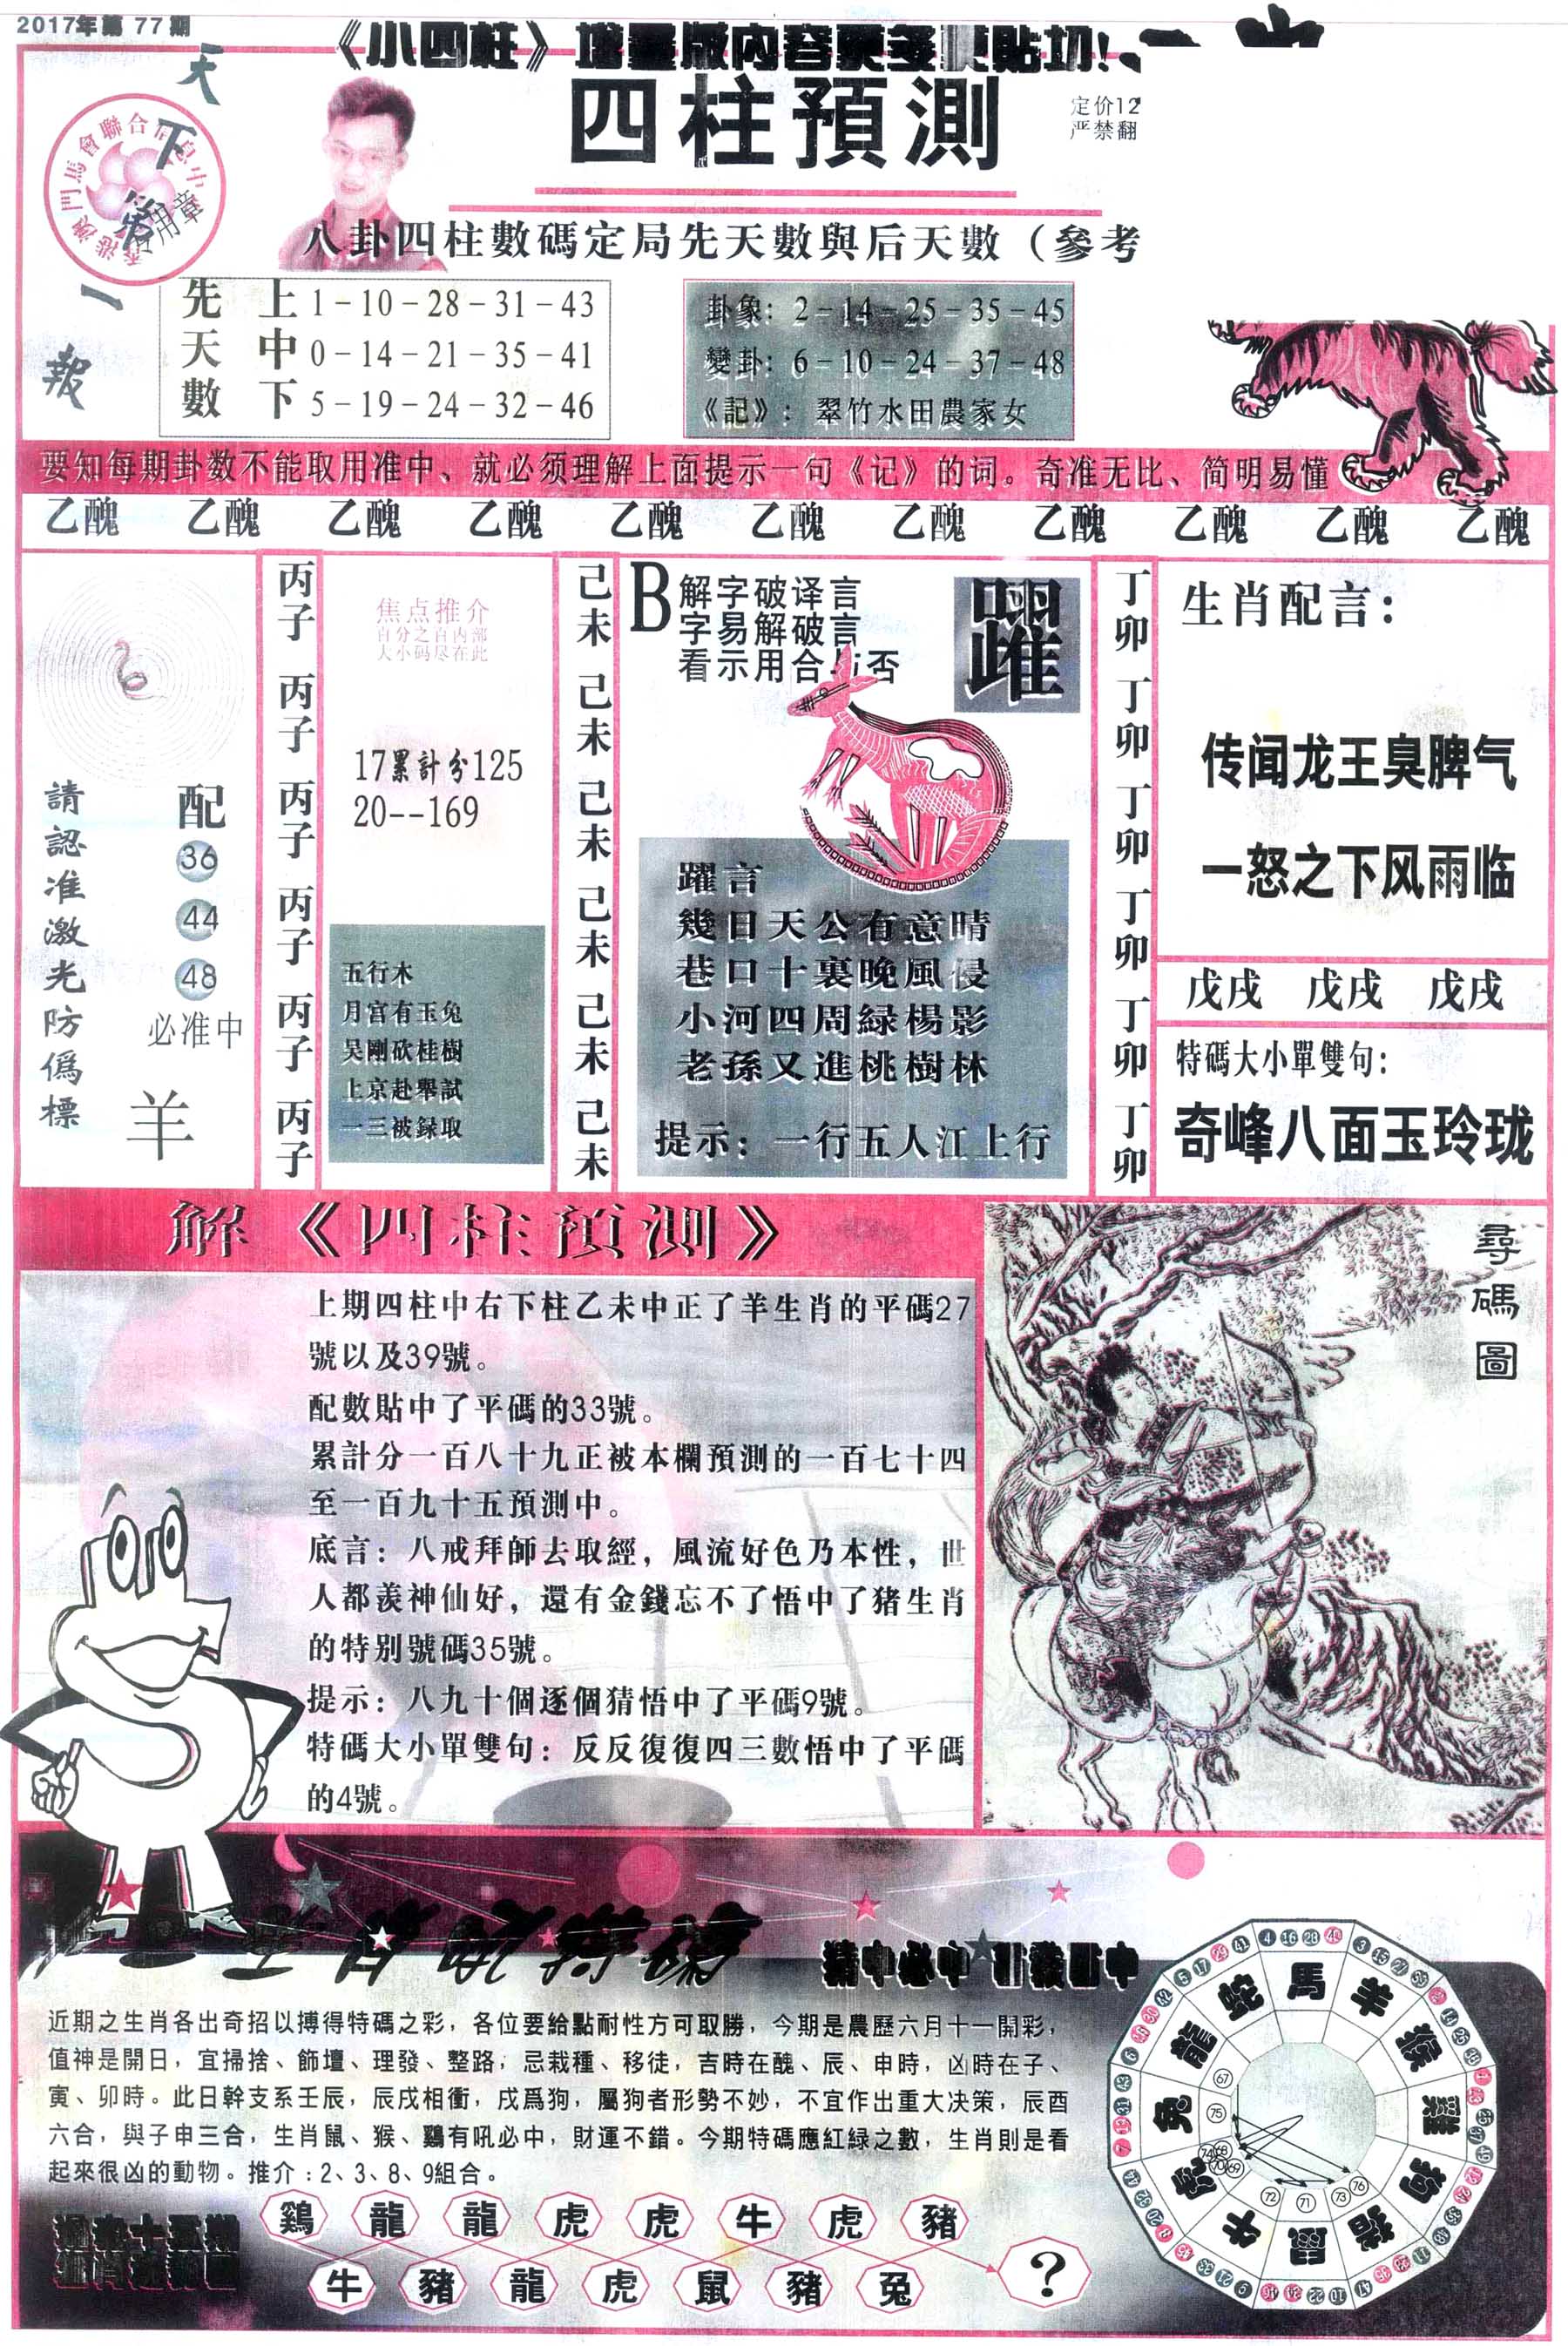 2017年第 77 期
《小四柱》增量版内容更多更贴切!
四柱預測
定价12
严禁翻
天下第一報
八卦四柱數碼定局先天數與后天數（參考
先天數
上 1-10-28-31-43
中 0-14-21-35-41
下 5-19-24-32-46
卦象: 2-14-25-35-45
變卦: 6-10-24-37-48
《記》: 翠竹水田農家女
要知每期卦数不能取用准中、就必须理解上面提示一句《记》的词。奇准无比、简明易懂
乙醜 乙醜 乙醜 乙醜 乙醜 乙醜 乙醜 乙醜 乙醜 乙醜 乙醜
請認准激光防僞標
配
36
44
48
必准中
羊
丙子 丙子 丙子 丙子 丙子 丙子
焦点推介
百分之百内部
大小码尽在此
17累計分125
20--169
五行木
月宫有玉兔
吴剛砍桂樹
上京赴舉試
一三被録取
己未 己未 己未 己未 己未 己未
B
解字破译言
字易解破言
看示用合与否
躍
躍言
幾日天公有意晴
巷口十裏晚風侵
小河四周緑楊影
老孫又進桃樹林
提示: 一行五人江上行
丁卯 丁卯 丁卯 丁卯 丁卯 丁卯
生肖配言:
传闻龙王臭脾气
一怒之下风雨临
戊戌 戊戌 戊戌
特碼大小單雙句:
奇峰八面玉玲珑
解《四柱預測》
上期四柱中右下柱乙未中正了羊生肖的平碼27
號以及39號。
配數貼中了平碼的33號。
累計分一百八十九正被本欄預測的一百七十四
至一百九十五預測中。
底言: 八戒拜師去取經，風流好色乃本性，世
人都羡神仙好，還有金錢忘不了悟中了猪生肖
的特别號碼35號。
提示: 八九十個逐個猜悟中了平碼9號。
特碼大小單雙句: 反反復復四三數悟中了平碼
的4號。
尋碼圖
近期之生肖各出奇招以搏得特碼之彩，各位要給點耐性方可取勝，今期是農歷六月十一開彩，
值神是開日，宜掃捨、飾壇、理發、整路；忌栽種、移徒，吉時在醜、辰、申時，凶時在子、
寅、卯時。此日幹支系壬辰，辰戌相衝，戌爲狗，屬狗者形勢不妙，不宜作出重大决策，辰酉
六合，與子申三合，生肖鼠、猴、鷄有吼必中，財運不錯。今期特碼應紅緑之數，生肖則是看
起來很凶的動物。推介:2、3、8、9組合。
鷄 龍 龍 虎 虎 牛 虎 豬
牛 豬 龍 虎 鼠 豬 兔 ?
馬 羊 猴 雞 狗 豬 鼠 牛 虎 兔 龍 蛇
67
75
74 68
70 69
72 71 73 76